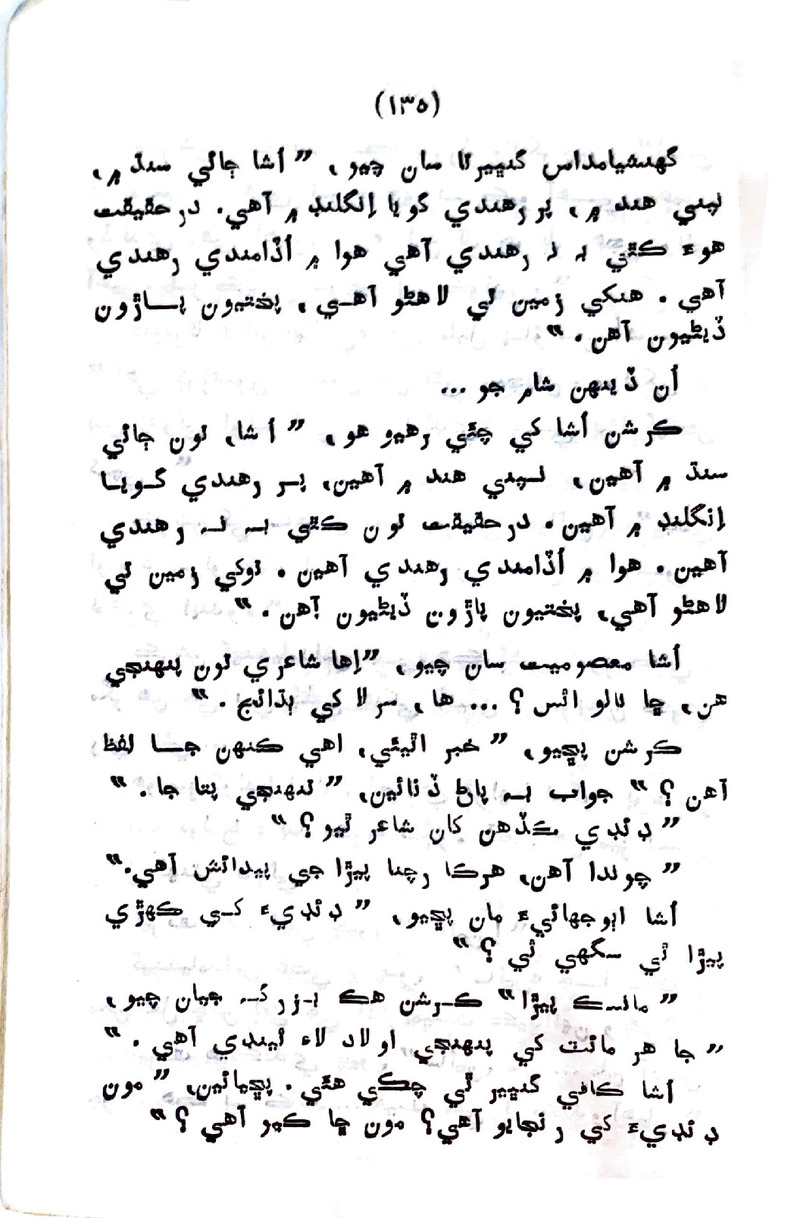 (١٣٥)
گهنشيامداس گنڀيرتا سان چيو، ” اُشا ڄائي سنڌ ۾،
نپني هند ۾، پر رهندي گويا اِنگلنڊ ۾ آهي. درحقيقت
هوءَ ڪٿي بہ نہ رهندي آهي هوا ۾ اُڏامندي رهندي
آهي. هنکي زمين تي لاهڻو آهي، پختيون پاڙون
ڏيڻيون آهن. “
اُن ڏينهن شام جو ...
ڪرشن اُشا کي چئي رهيو هو، ” اُشا، تون ڄائي
سنڌ ۾ آهين، نپني هند ۾ آهين، پر رهندي گويا
اِنگلنڊ ۾ آهين. درحقيقت تون ڪٿي بہ نہ رهندي
آهين. هوا ۾ اُڏامندي رهندي آهين. توکي زمين تي
لاهڻو آهي، پختيون پاڙون ڏيڻيون آهن. “
اُشا معصوميت سان چيو، ”اِها شاعري تون پنهنجي
هن، ڇا نالو اٿس؟ ... ها، سرلا کي ٻڌائج. “
ڪرشن پڇيو، ” خبر اٿيئي، اهي ڪنهن جا لفظ
آهن؟ “ جواب بہ پاڻ ڏنائين، ” تنهنجي پتا جا. “
” ڊئڊي ڪڏهن کان شاعر ٿيو؟ “
” چوندا آهن، هرڪا رچنا پيڙا جي پيدائش آهي.“
اُشا اٻوجهائيءَ مان پڇيو، ” ڊئڊيءَ کي ڪهڙي
پيڙا ٿي سگهي ٿي؟ “
” مانسڪ پيڙا“ ڪرشن هڪ بزرگ جيان چيو،
” جا هر مائٽ کي پنهنجي اولاد لاءِ ٿيندي آهي. “
اُشا ڪافي گنڀير ٿي چڪي هئي. پڇيائين، ” مون
ڊئڊيءَ کي رنجايو آهي؟ مون ڇا ڪيو آهي؟ “